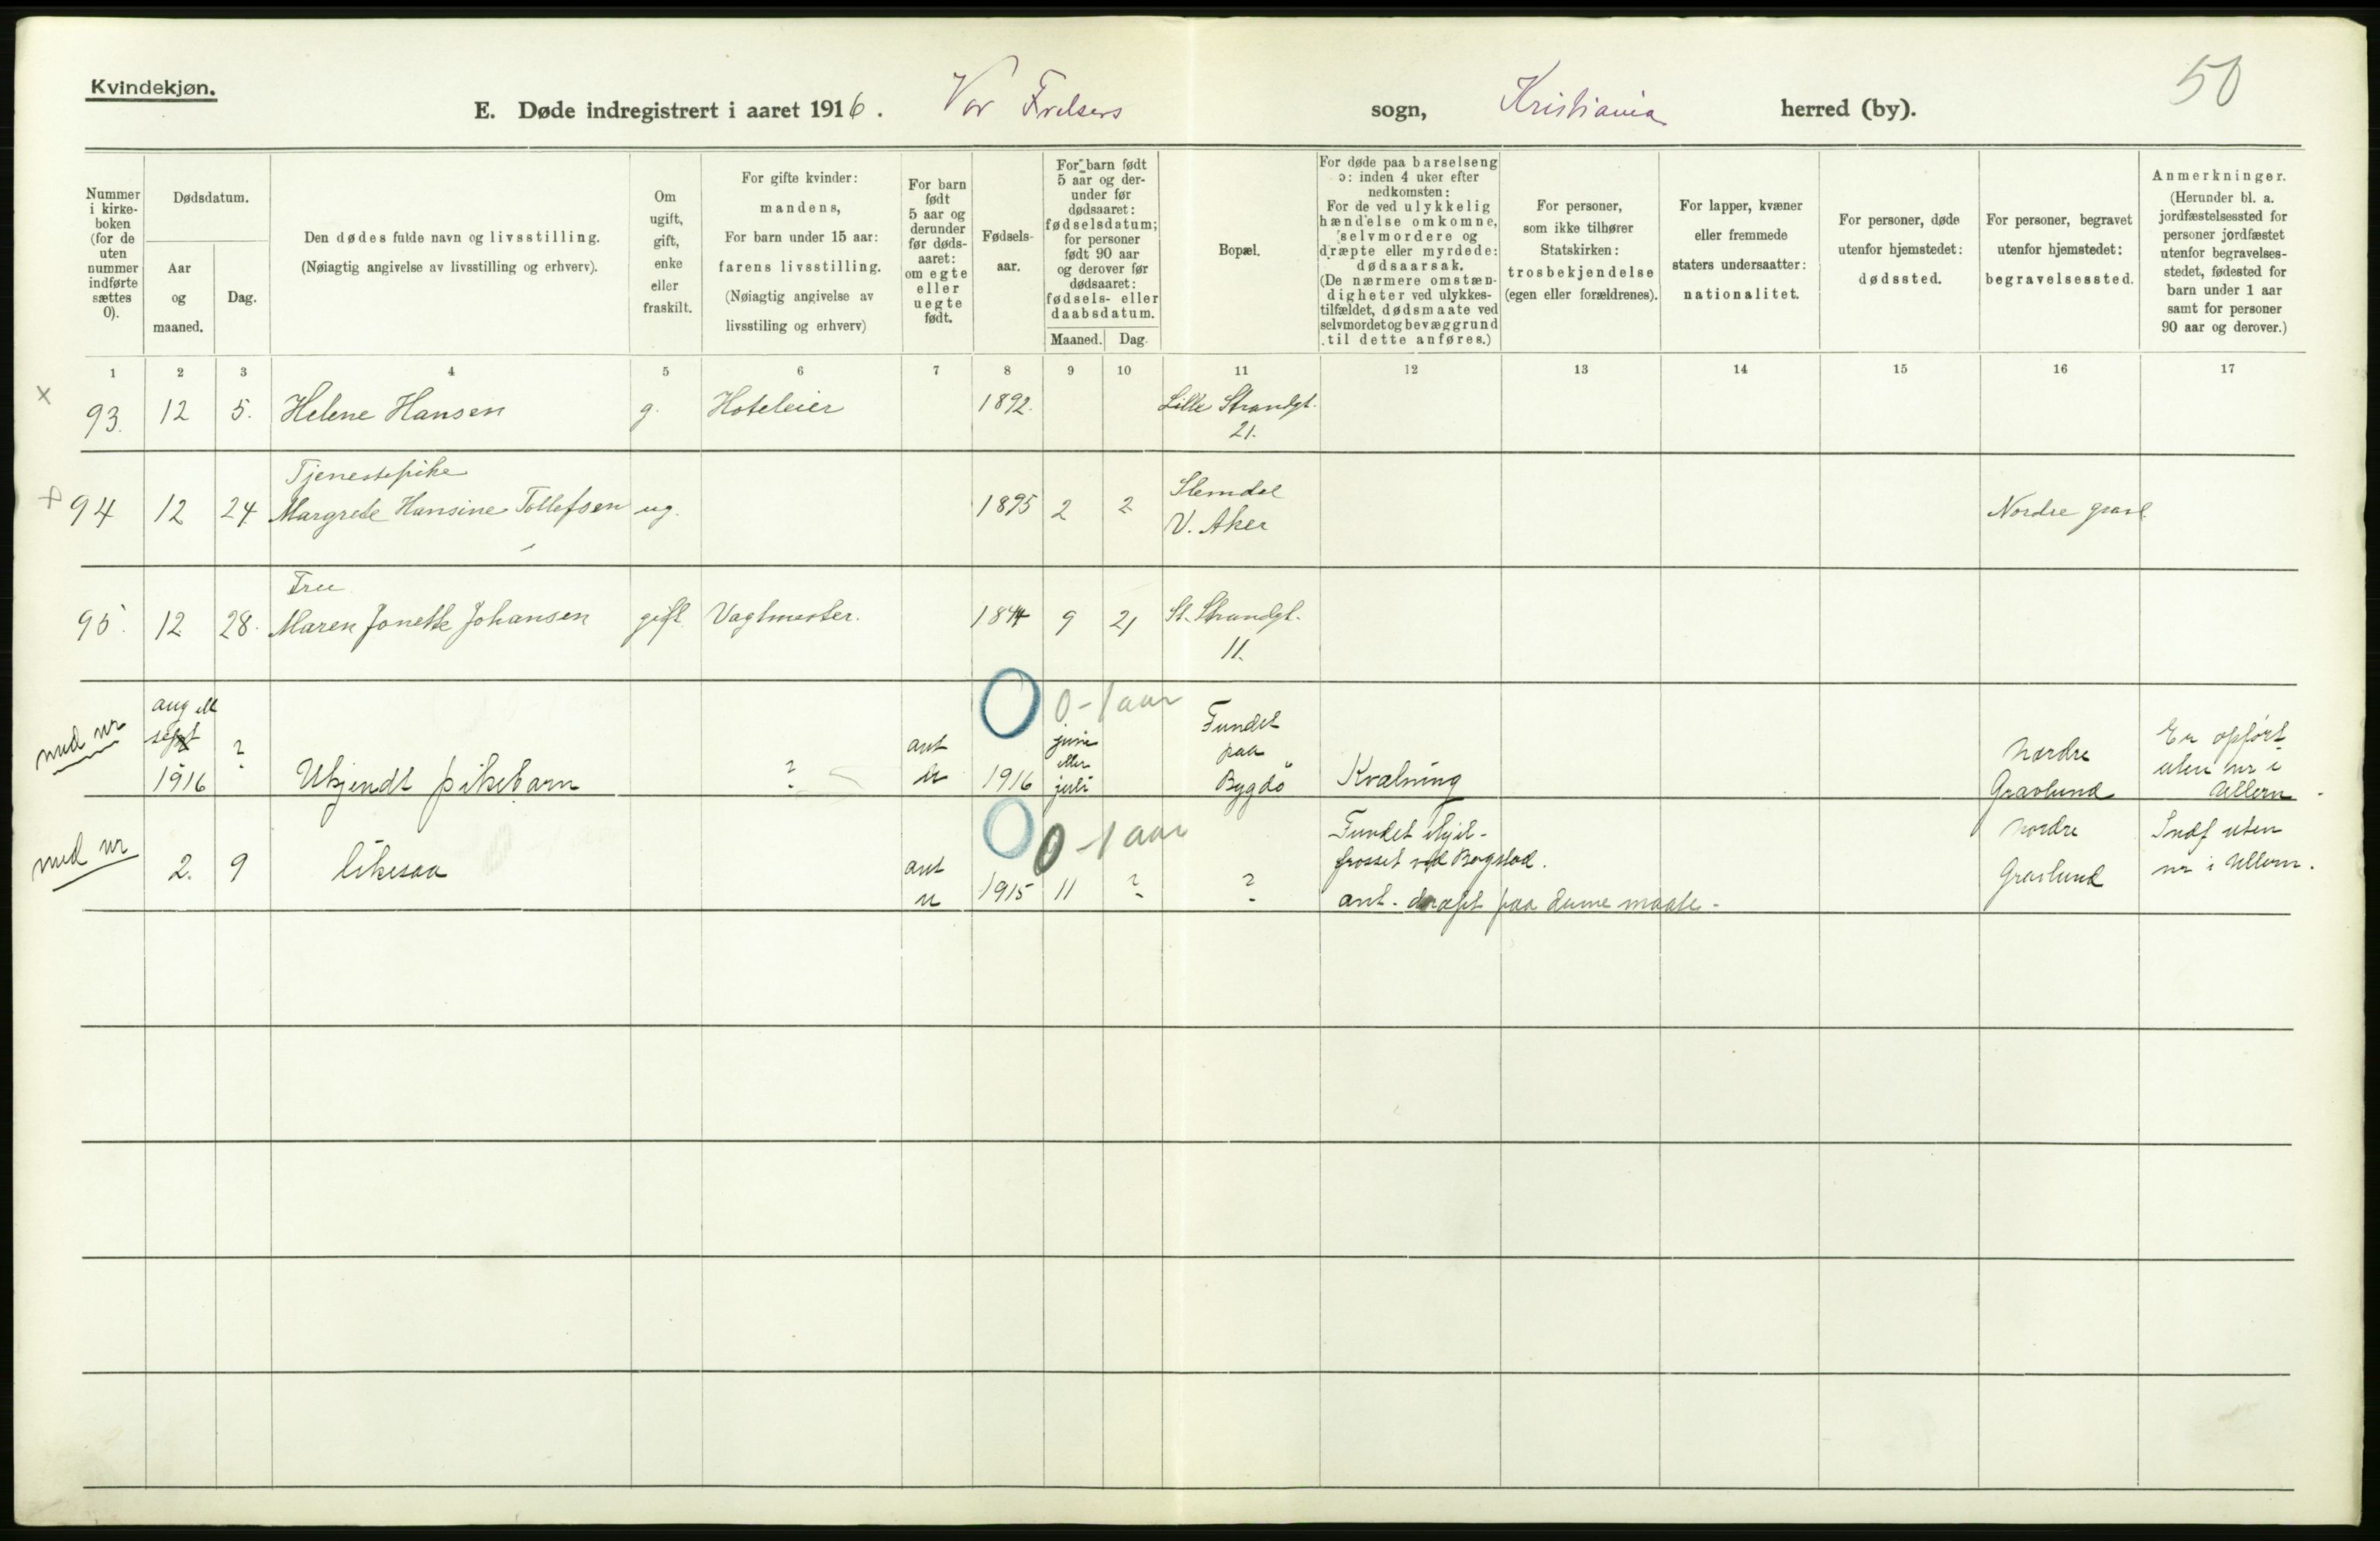 Kvindekjøn.
50
E. Døde indregistrert i aaret 1916. Vor Frelsers sogn, Kristiania herred (by).
Nummer
i kirke-
boken
(for de
uten
nummer
indførte
sættes
0).
Dødsdatum.
Aar
og
maaned.
Dag.
Den dødes fulde navn og livsstilling.
(Nøiagtig angivelse av livsstilling og erhverv).
Om
ugift,
gift,
enke
eller
fraskilt.
For gifte kvinder:
mandens,
For barn under 15 aar:
farens livsstilling.
(Nøiagtig angivelse av
livsstiling og erhverv)
For barn
født
5 aar og
derunder
før døds-
aaret:
om egte
eller
uegte
født.
Fødsels-
aar.
For barn født
5 aar og der-
under før
dødsaaret:
fødselsdatum;
for personer
født 90 aar
og derover før
dødsaaret:
fødsels- eller
daabsdatum.
Maaned. Dag.
Bopæl.
For døde paa barselseng
ɔ: inden 4 uker efter
nedkomsten:
For de ved ulykkelig
hændelse omkomne,
selvmordere og
dræpte eller myrdede:
dødsaarsak.
(De nærmere omstæn-
digheter ved ulykkes-
tilfældet, dødsmaate ved
selvmordet og bevæggrund
til dette anføres.)
For personer,
som ikke tilhører
Statskirken:
trosbekjendelse
(egen eller forældrenes).
For lapper, kvæner
eller fremmede
staters undersaatter:
nationalitet.
For personer, døde
utenfor hjemstedet:
dødssted.
For personer, begravet
utenfor hjemstedet:
begravelsessted.
Anmerkninger.
(Herunder bl. a.
jordfæstelsessted for
personer jordfæstet
utenfor begravelses-
stedet, fødested for
barn under 1 aar
samt for personer
90 aar og derover.)
1 2 3 4 5 6 7 8 9 10 11 12 13 14 15 16 17
x
93. 12 5. Helene Hansen g. Hoteleier 1892. Lille Strandgt.
21.
Tjenestepike
94 12 24 Margrete Hansine Tollefsen ug. 1895 2 2 Slemdal
V. Aker
Nordre gravl.
Frue
95. 12 28. Maren Jonette Johansen gift Vagtmester. 1844 9 21 St. Strandgt.
11.
med nr
aug ell
sept
1916 ? Ukjendt pikebarn ?
ant
u 1916
0 0-1 aar
juni
eller
juli
Fundet
paa
Bygdö
Kvælning
Nordre
Gravlund
Er opført
uten nr i
Ullern
med nr
2. 9 likesaa
ant
u 1915 11 ? ?
0 0-1 aar
Fundet ihjel-
frosset ved Bogstad.
ant. dræpt paa denne maate.
Nordre
Gravlund
Indf uten
nr i Ullern.